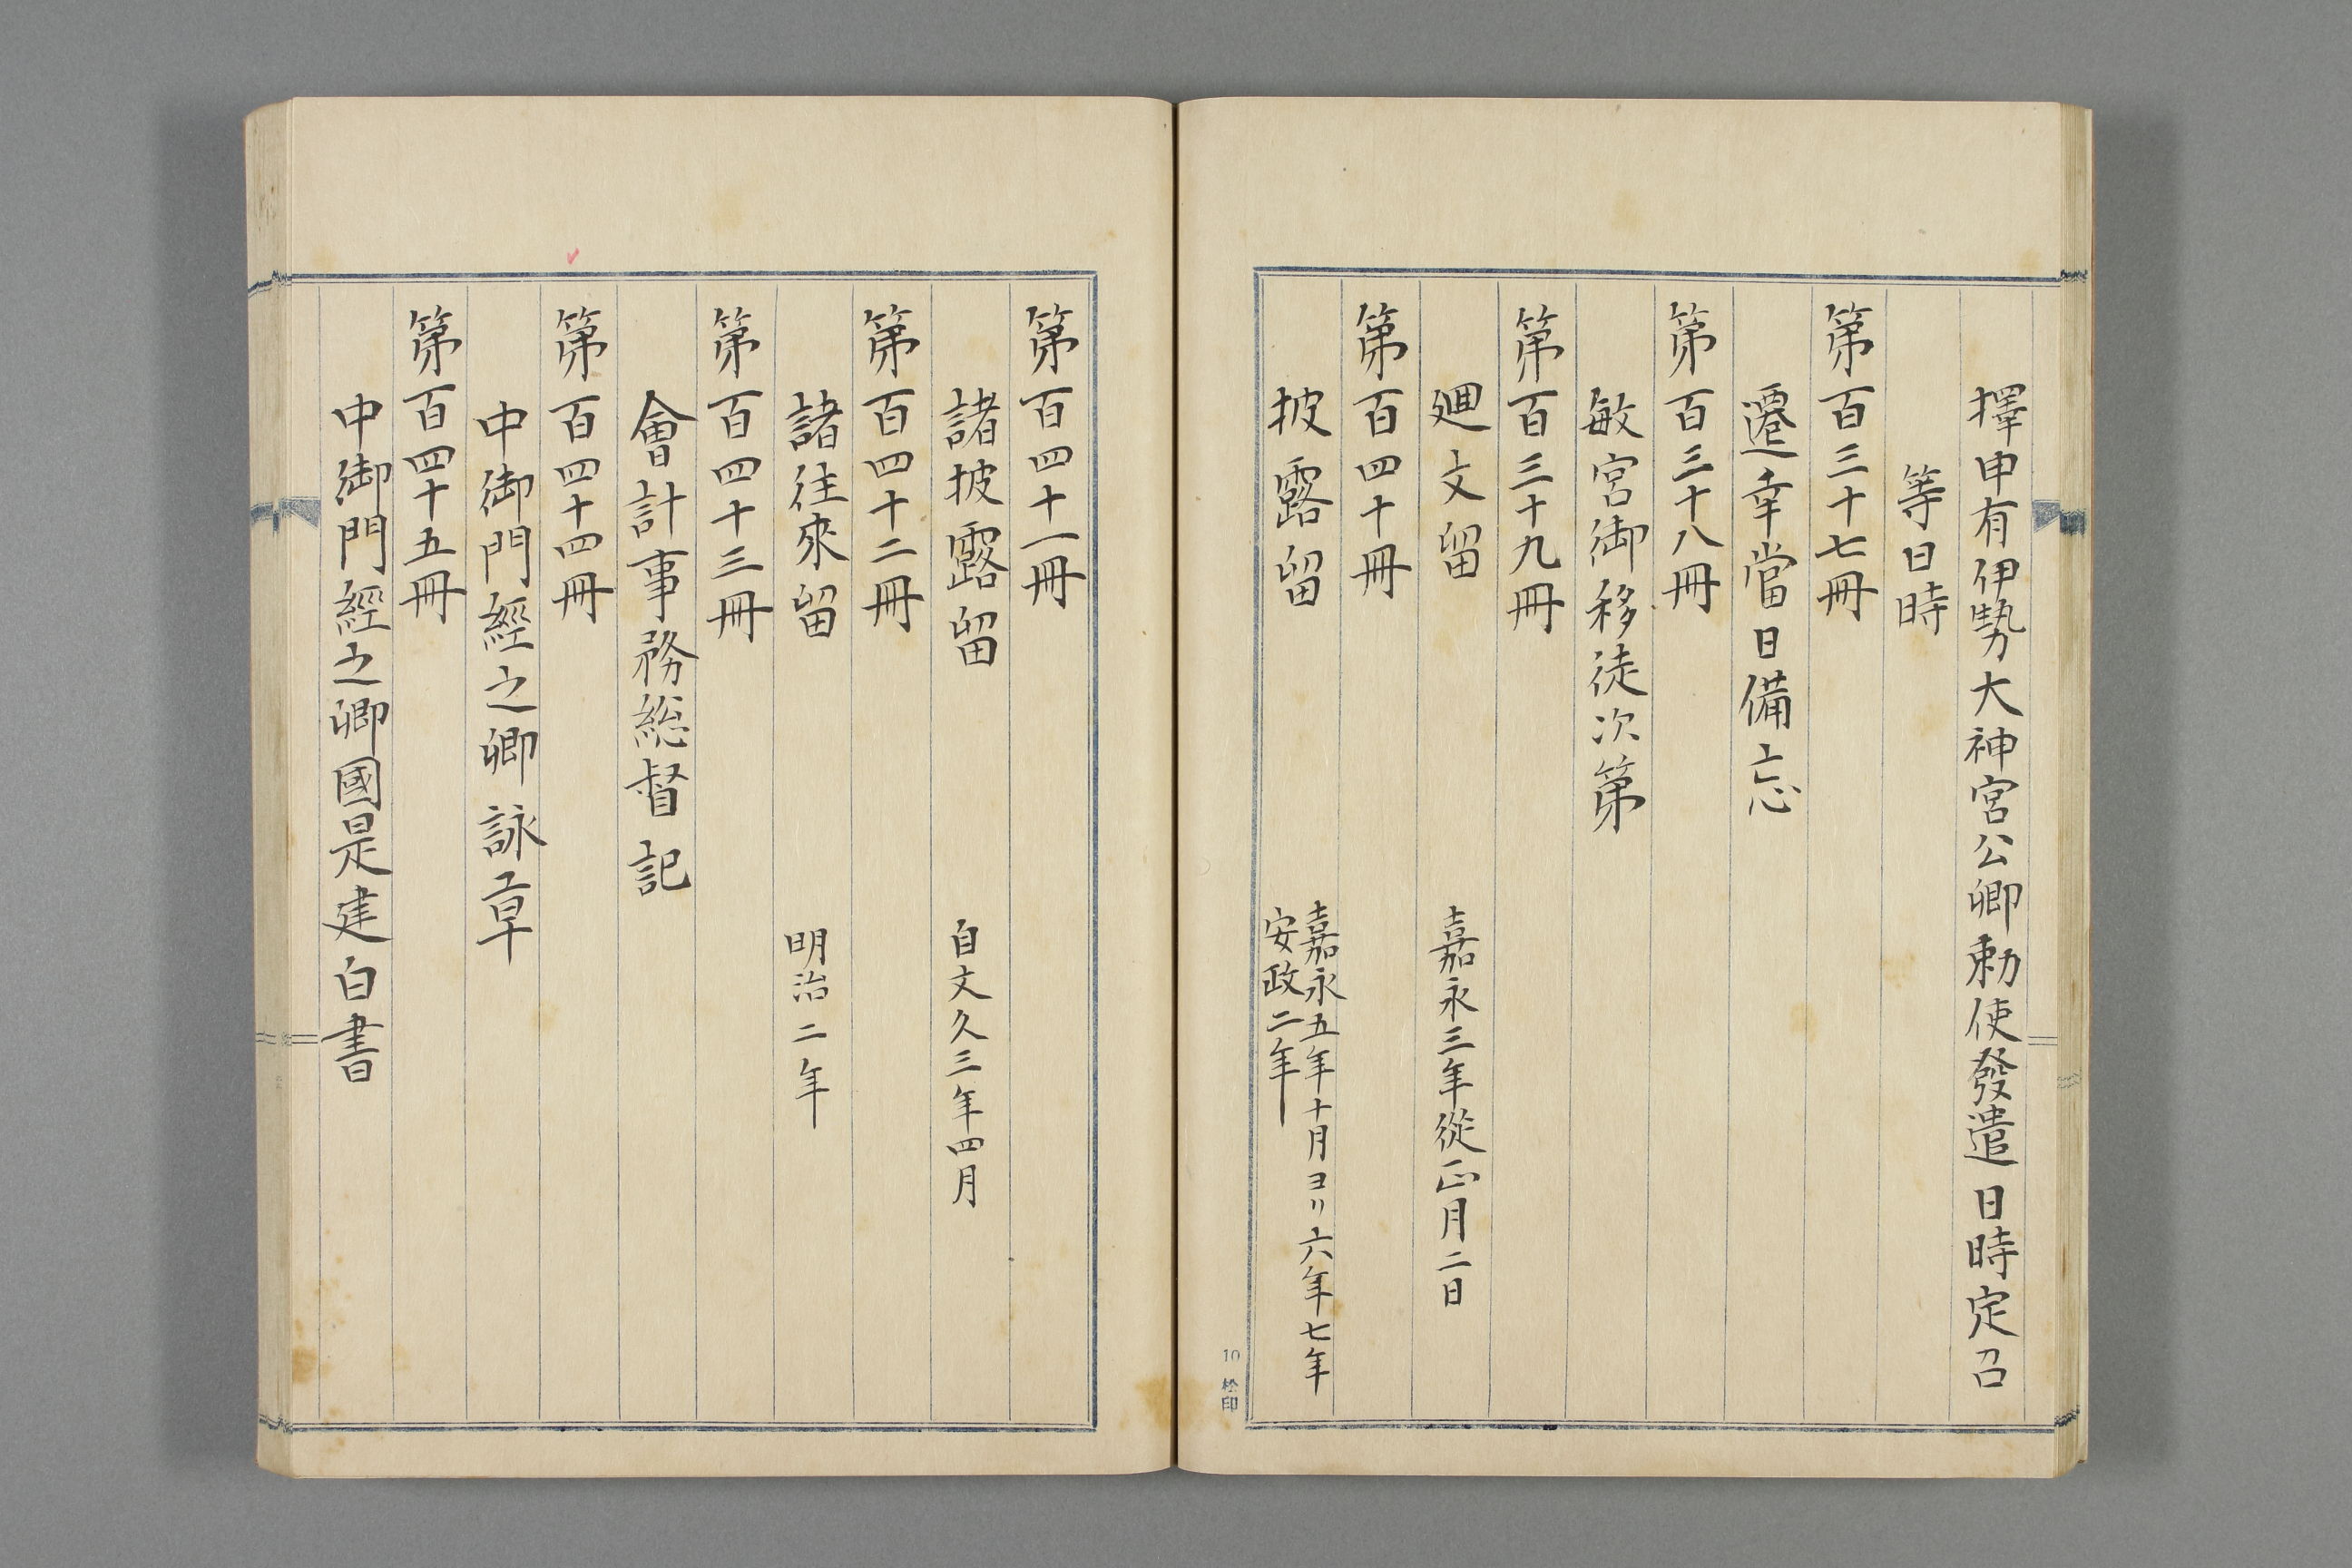 擇申有伊勢大神宮公卿勅使發遣日時定召
等日時
第百三十七冊
遷幸當日備忘
第百三十八冊
敏宮御移徙次第
第百三十九冊
廻文留 嘉永三年從正月二日
第百四十冊
披露留 嘉永五年十月ヨリ六年七年
安政二年
10 松印
第百四十一冊
諸披露留 自文久三年四月
第百四十二冊
諸往來留 明治二年
第百四十三冊
會計事務総督記
第百四十四冊
中御門經之卿詠草
第百四十五冊
中御門經之卿國是建白書